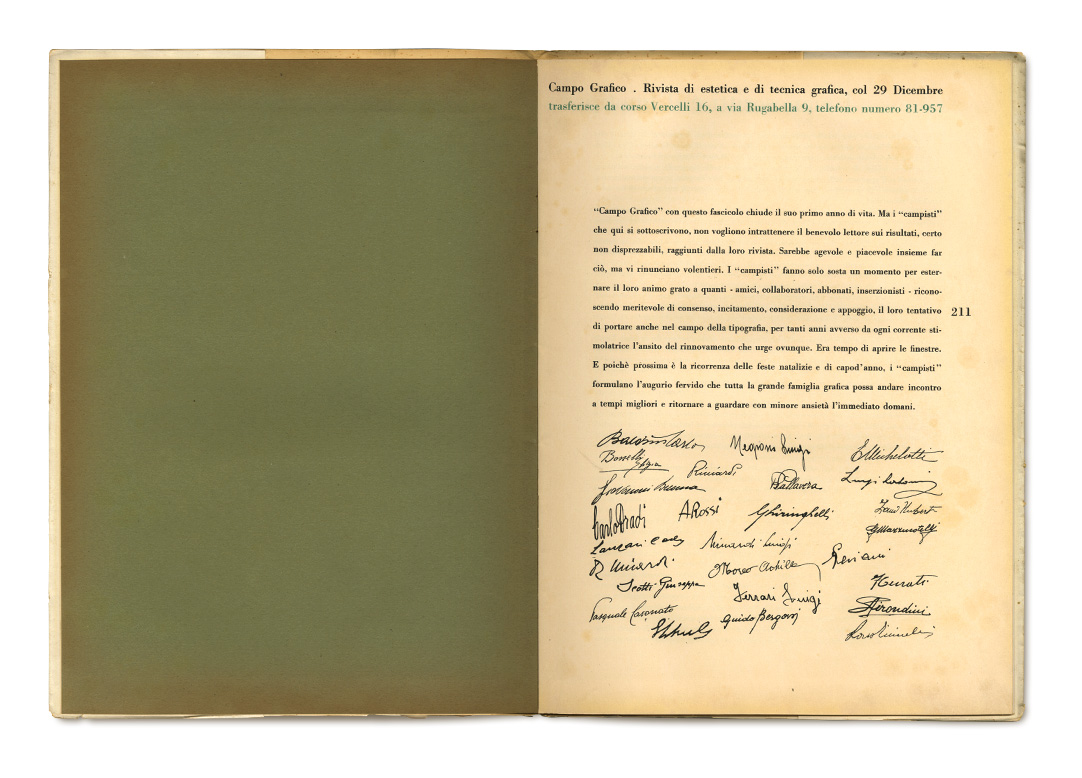 Campo Grafico . Rivista di estetica e di tecnica grafica, col 29 Dicembre
trasferisce da corso Vercelli 16, a via Rugabella 9, telefono numero 81-957
“Campo Grafico” con questo fascicolo chiude il suo primo anno di vita. Ma i “campisti”
che qui si sottoscrivono, non vogliono intrattenere il benevolo lettore sui risultati, certo
non disprezzabili, raggiunti dalla loro rivista. Sarebbe agevole e piacevole insieme far
ciò, ma vi rinunciano volentieri. I “campisti” fanno solo sosta un momento per ester-
nare il loro animo grato a quanti - amici, collaboratori, abbonati, inserzionisti - ricono-
scendo meritevole di consenso, incitamento, considerazione e appoggio, il loro tentativo
211
di portare anche nel campo della tipografia, per tanti anni avverso da ogni corrente sti-
molatrice l’ansito del rinnovamento che urge ovunque. Era tempo di aprire le finestre.
E poichè prossima è la ricorrenza delle feste natalizie e di capod’anno, i “campisti”
formulano l’augurio fervido che tutta la grande famiglia grafica possa andare incontro
a tempi migliori e ritornare a guardare con minore ansietà l’immediato domani.
Negroni Luigi
E Michelotti
Ricciardi
Pallavera
Luigi
Giovanni
Carlo Dradi
A Rossi
Ghiringhelli
Luigi
Moreo Achille
Scotti Giuseppe
Ferrari Luigi
Pasquale Casonato
Guido Bergossi
Girondini